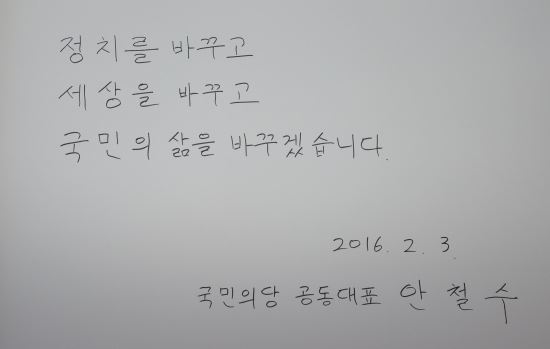 정치를 바꾸고
세상을 바꾸고
국민의 삶을 바꾸겠습니다.
2016. 2. 3.
국민의당 공동대표 안철수